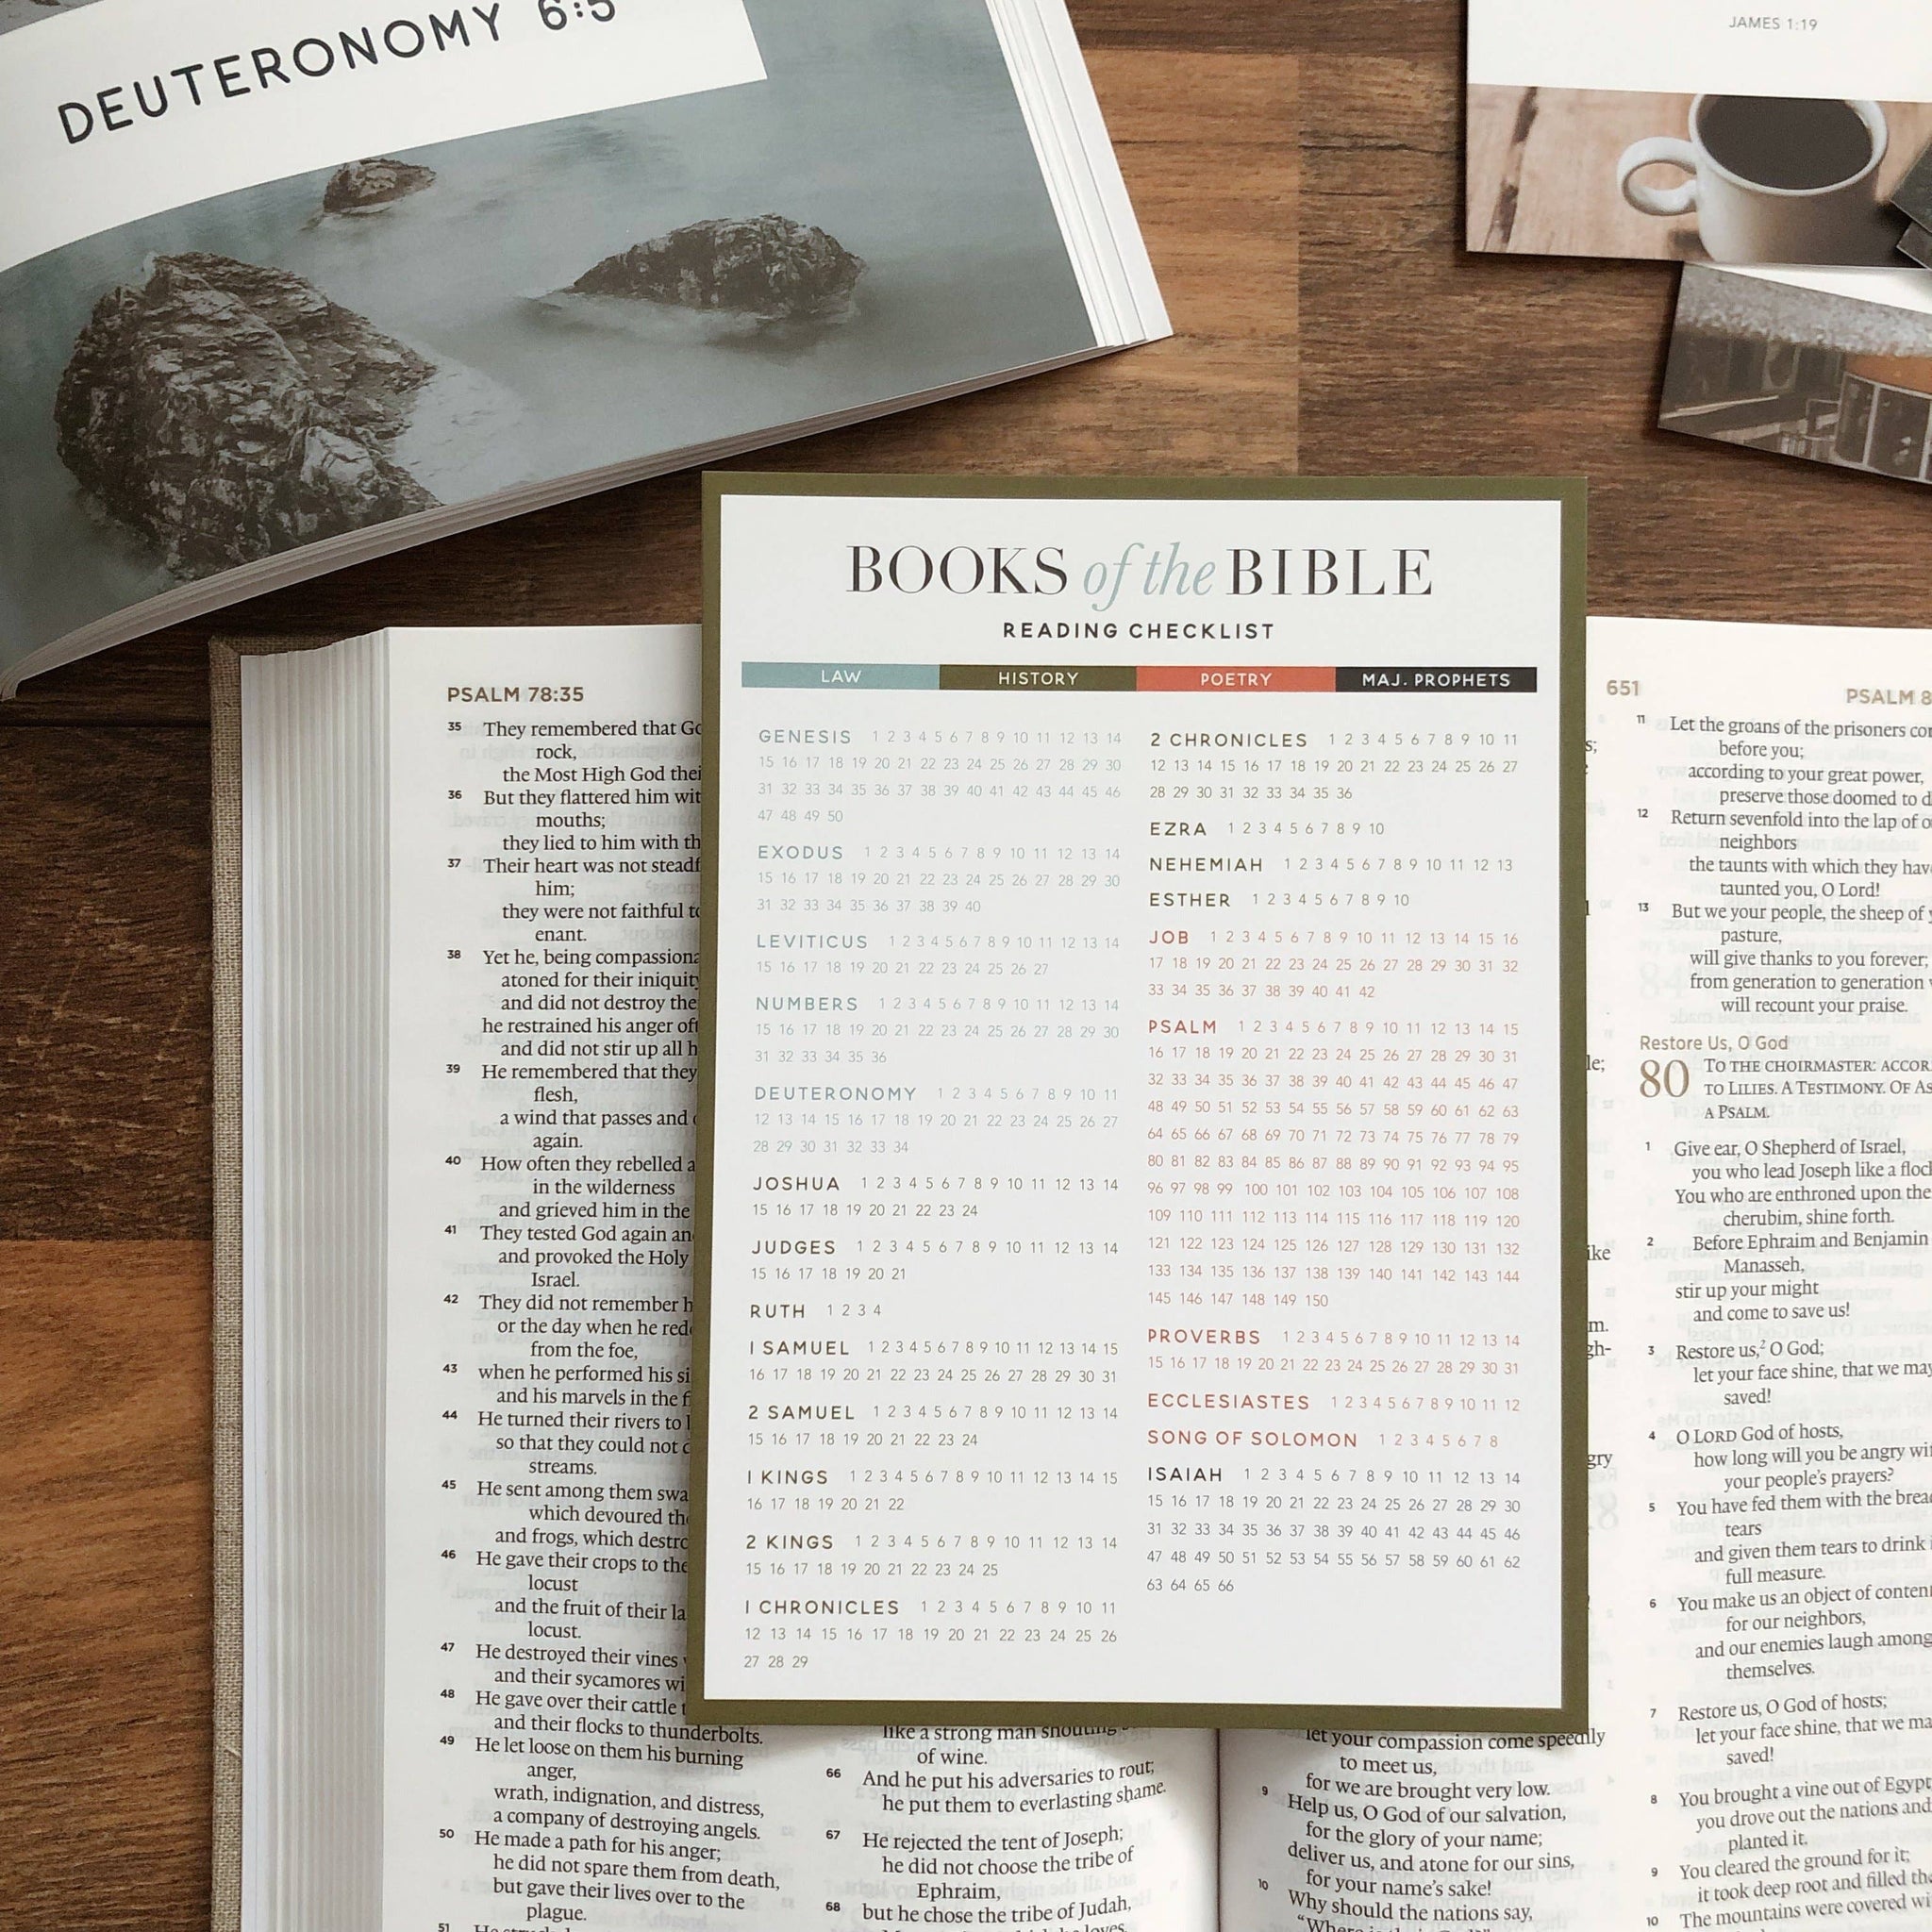 DEUTERONOMY 6:5
JAMES 1:19
BOOKS of the BIBLE
READING CHECKLIST
LAW HISTORY POETRY MAJ. PROPHETS
GENESIS 1 2 3 4 5 6 7 8 9 10 11 12 13 14
15 16 17 18 19 20 21 22 23 24 25 26 27 28 29 30
31 32 33 34 35 36 37 38 39 40 41 42 43 44 45 46
47 48 49 50
EXODUS 1 2 3 4 5 6 7 8 9 10 11 12 13 14
15 16 17 18 19 20 21 22 23 24 25 26 27 28 29 30
31 32 33 34 35 36 37 38 39 40
LEVITICUS 1 2 3 4 5 6 7 8 9 10 11 12 13 14
15 16 17 18 19 20 21 22 23 24 25 26 27
NUMBERS 1 2 3 4 5 6 7 8 9 10 11 12 13 14
15 16 17 18 19 20 21 22 23 24 25 26 27 28 29 30
31 32 33 34 35 36
DEUTERONOMY 1 2 3 4 5 6 7 8 9 10 11
12 13 14 15 16 17 18 19 20 21 22 23 24 25 26 27
28 29 30 31 32 33 34
JOSHUA 1 2 3 4 5 6 7 8 9 10 11 12 13 14
15 16 17 18 19 20 21 22 23 24
JUDGES 1 2 3 4 5 6 7 8 9 10 11 12 13 14
15 16 17 18 19 20 21
RUTH 1 2 3 4
1 SAMUEL 1 2 3 4 5 6 7 8 9 10 11 12 13 14 15
16 17 18 19 20 21 22 23 24 25 26 27 28 29 30 31
2 SAMUEL 1 2 3 4 5 6 7 8 9 10 11 12 13 14
15 16 17 18 19 20 21 22 23 24
1 KINGS 1 2 3 4 5 6 7 8 9 10 11 12 13 14 15
16 17 18 19 20 21 22
2 KINGS 1 2 3 4 5 6 7 8 9 10 11 12 13 14
15 16 17 18 19 20 21 22 23 24 25
1 CHRONICLES 1 2 3 4 5 6 7 8 9 10 11
12 13 14 15 16 17 18 19 20 21 22 23 24 25 26
27 28 29
2 CHRONICLES 1 2 3 4 5 6 7 8 9 10 11
12 13 14 15 16 17 18 19 20 21 22 23 24 25 26 27
28 29 30 31 32 33 34 35 36
EZRA 1 2 3 4 5 6 7 8 9 10
NEHEMIAH 1 2 3 4 5 6 7 8 9 10 11 12 13
ESTHER 1 2 3 4 5 6 7 8 9 10
JOB 1 2 3 4 5 6 7 8 9 10 11 12 13 14 15 16
17 18 19 20 21 22 23 24 25 26 27 28 29 30 31 32
33 34 35 36 37 38 39 40 41 42
PSALM 1 2 3 4 5 6 7 8 9 10 11 12 13 14 15
16 17 18 19 20 21 22 23 24 25 26 27 28 29 30 31
32 33 34 35 36 37 38 39 40 41 42 43 44 45 46 47
48 49 50 51 52 53 54 55 56 57 58 59 60 61 62 63
64 65 66 67 68 69 70 71 72 73 74 75 76 77 78 79
80 81 82 83 84 85 86 87 88 89 90 91 92 93 94 95
96 97 98 99 100 101 102 103 104 105 106 107 108
109 110 111 112 113 114 115 116 117 118 119 120
121 122 123 124 125 126 127 128 129 130 131 132
133 134 135 136 137 138 139 140 141 142 143 144
145 146 147 148 149 150
PROVERBS 1 2 3 4 5 6 7 8 9 10 11 12 13 14
15 16 17 18 19 20 21 22 23 24 25 26 27 28 29 30 31
ECCLESIASTES 1 2 3 4 5 6 7 8 9 10 11 12
SONG OF SOLOMON 1 2 3 4 5 6 7 8
ISAIAH 1 2 3 4 5 6 7 8 9 10 11 12 13 14
15 16 17 18 19 20 21 22 23 24 25 26 27 28 29 30
31 32 33 34 35 36 37 38 39 40 41 42 43 44 45 46
47 48 49 50 51 52 53 54 55 56 57 58 59 60 61 62
63 64 65 66
PSALM 78:35
35 They remembered that
rock,
the Most High God
36 But they flattered him
mouths;
they lied to him with
37 Their heart was not
him;
they were not faithful
enant.
38 Yet he, being
atoned for their iniquity
and did not destroy
he restrained his anger
and did not stir up all
39 He remembered that they
flesh,
a wind that passes and
again.
40 How often they rebelled
in the wilderness
and grieved him in the
41 They tested God again
and provoked the Holy
Israel.
42 They did not remember
or the day when he
from the foe,
43 when he performed his
and his marvels in the
44 He turned their rivers to
so that they could not
streams.
45 He sent among them
which devoured
and frogs, which
46 He gave their crops to the
locust
and the fruit of their
locust.
47 He destroyed their vines
and their sycamores
48 He gave over their cattle
and their flocks to thunderbolts.
49 He let loose on them his burning
anger,
wrath, indignation, and distress,
a company of destroying angels.
50 He made a path for his anger;
he did not spare them from death,
but gave their lives over to the
plague.
51
like a strong man shouting
of wine.
66 And he put his adversaries to rout;
he put them to everlasting shame.
67 He rejected the tent of Joseph;
he did not choose the tribe of
Ephraim,
68 but he chose the tribe of Judah,
loves.
let your compassion come speedily
to meet us,
for we are brought very low.
9 Help us, O God of our salvation,
for the glory of your name;
deliver us, and atone for our sins,
for your name's sake!
10 Why should the nations say,
651
PSALM
11 Let the groans of the prisoners
before you;
according to your great power,
preserve those doomed to
12 Return sevenfold into the lap of
neighbors
the taunts with which they
taunted you, O Lord!
13 But we your people, the sheep of
pasture,
will give thanks to you forever;
from generation to generation
will recount your praise.
Restore Us, O God
80 TO THE CHOIRMASTER:
TO LILIES. A TESTIMONY. OF
A PSALM.
1 Give ear, O Shepherd of Israel,
you who lead Joseph like a
You who are enthroned upon the
cherubim, shine forth.
2 Before Ephraim and Benjamin
Manasseh,
stir up your might
and come to save us!
3 Restore us,2 O God;
let your face shine, that we may
saved!
4 O LORD God of hosts,
how long will you be angry
your people's prayers?
5 You have fed them with the
tears
and given them tears to drink
full measure.
6 You make us an object of
for our neighbors,
and our enemies laugh among
themselves.
7 Restore us, O God of hosts;
let your face shine, that we
saved!
8 You brought a vine out of Egypt
you drove out the nations and
planted it.
9 You cleared the ground for it;
it took deep root and filled
10 The mountains were covered